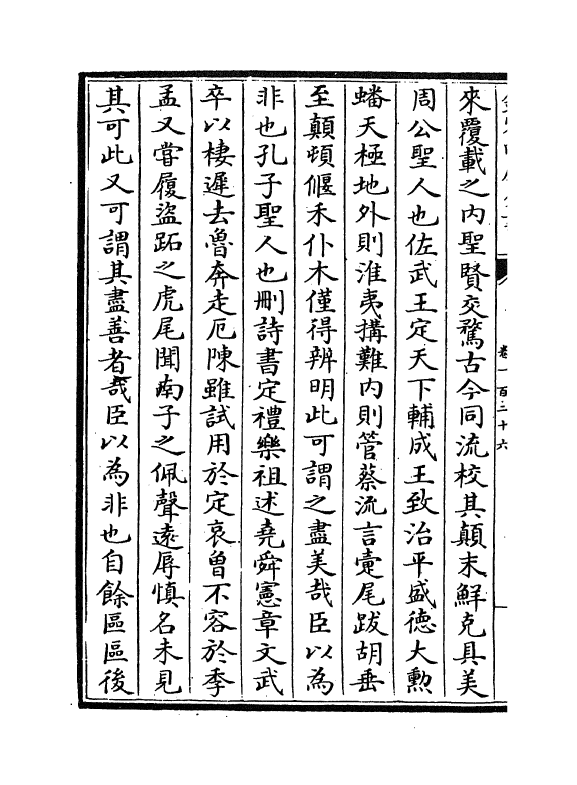 卷一百三十六
來覆載之内聖賢交騖古今同流校其顛末鮮克具美
周公聖人也佐武王定天下輔成王致治平盛德大勲
蟠天極地外則淮夷搆難内則管蔡流言疐尾跋胡垂
至顛頓偃禾仆木僅得辨明此可謂之盡美哉臣以為
非也孔子聖人也刪詩書定禮樂祖述堯舜憲章文武
卒以棲遲去魯奔走厄陳雖試用於定哀曾不容於季
孟又嘗履盜跖之虎尾聞南子之佩聲逺辱慎名未見
其可此又可謂其盡善者哉臣以為非也自餘區區後